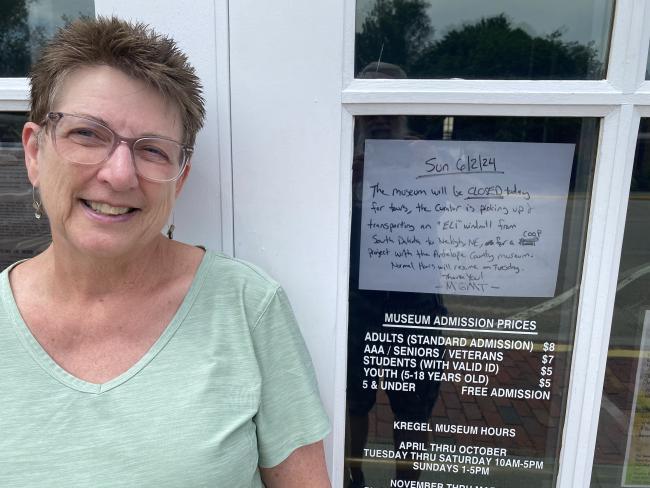 Sun 6/2/24
The museum will be CLOSED today
for tours, the Curator is picking up &
transporting an "Eli" windmill from
South Dakota to Neligh, NE, for a COOP
project with the Antelope County museum.
Normal Hours will resume on Tuesday.
Thank You!
- MGMT -
MUSEUM ADMISSION PRICES
ADULTS (STANDARD ADMISSION) $8
AAA / SENIORS / VETERANS $7
STUDENTS (WITH VALID ID) $5
YOUTH (5-18 YEARS OLD) $5
5 & UNDER FREE ADMISSION
KREGEL MUSEUM HOURS
APRIL THRU OCTOBER
TUESDAY THRU SATURDAY 10AM-5PM
SUNDAYS 1-5PM
NOVEMBER THRU